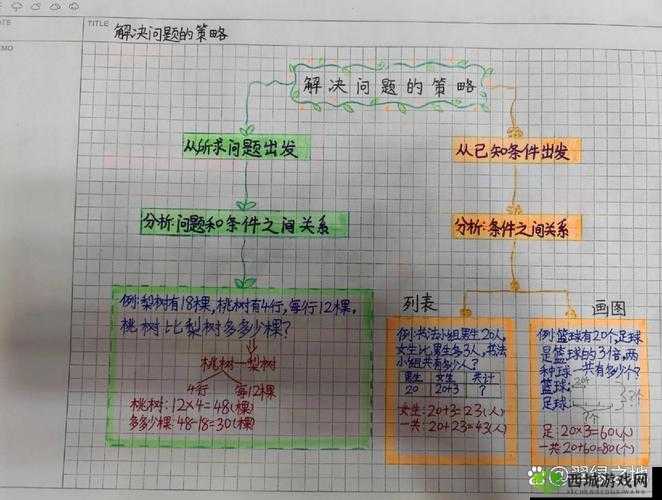 TITLE
解决问题的策略
EMO
解决问题的策略
从所求问题出发
分析:问题和条件之间关系
例:梨树有18棵,桃树有4行,每行12棵,
桃树比梨树多多少棵?
桃树-梨树
4行 每行12棵
桃树:12×4=48(棵)
多多少棵:48-18=30(棵)
从已知条件出发
分析:条件之间关系
列表
例:书法小组男生20人,
女生比男生多3人,书法
小组共有多少人?
男生 女生 共计
20 20+3 ?
女生:20+3=23(人)
一共:20+23=43(人)
画图
例:篮球有20个,足球
是篮球的3倍,两
种球一共有多少个?
篮球:
足球:
足:20×3=60(个)
一共20+60=80(个)
西城游戏网